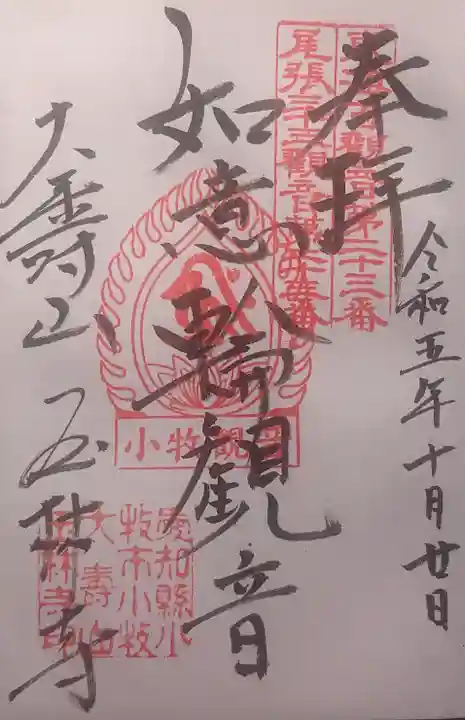 奉拝
令和五年十月廿日
如意輪観音
大壽山 玉林寺
尾張三十三觀音第
觀音第二十三番
小牧觀音
愛知縣小
牧市小牧
大壽山
玉林寺印